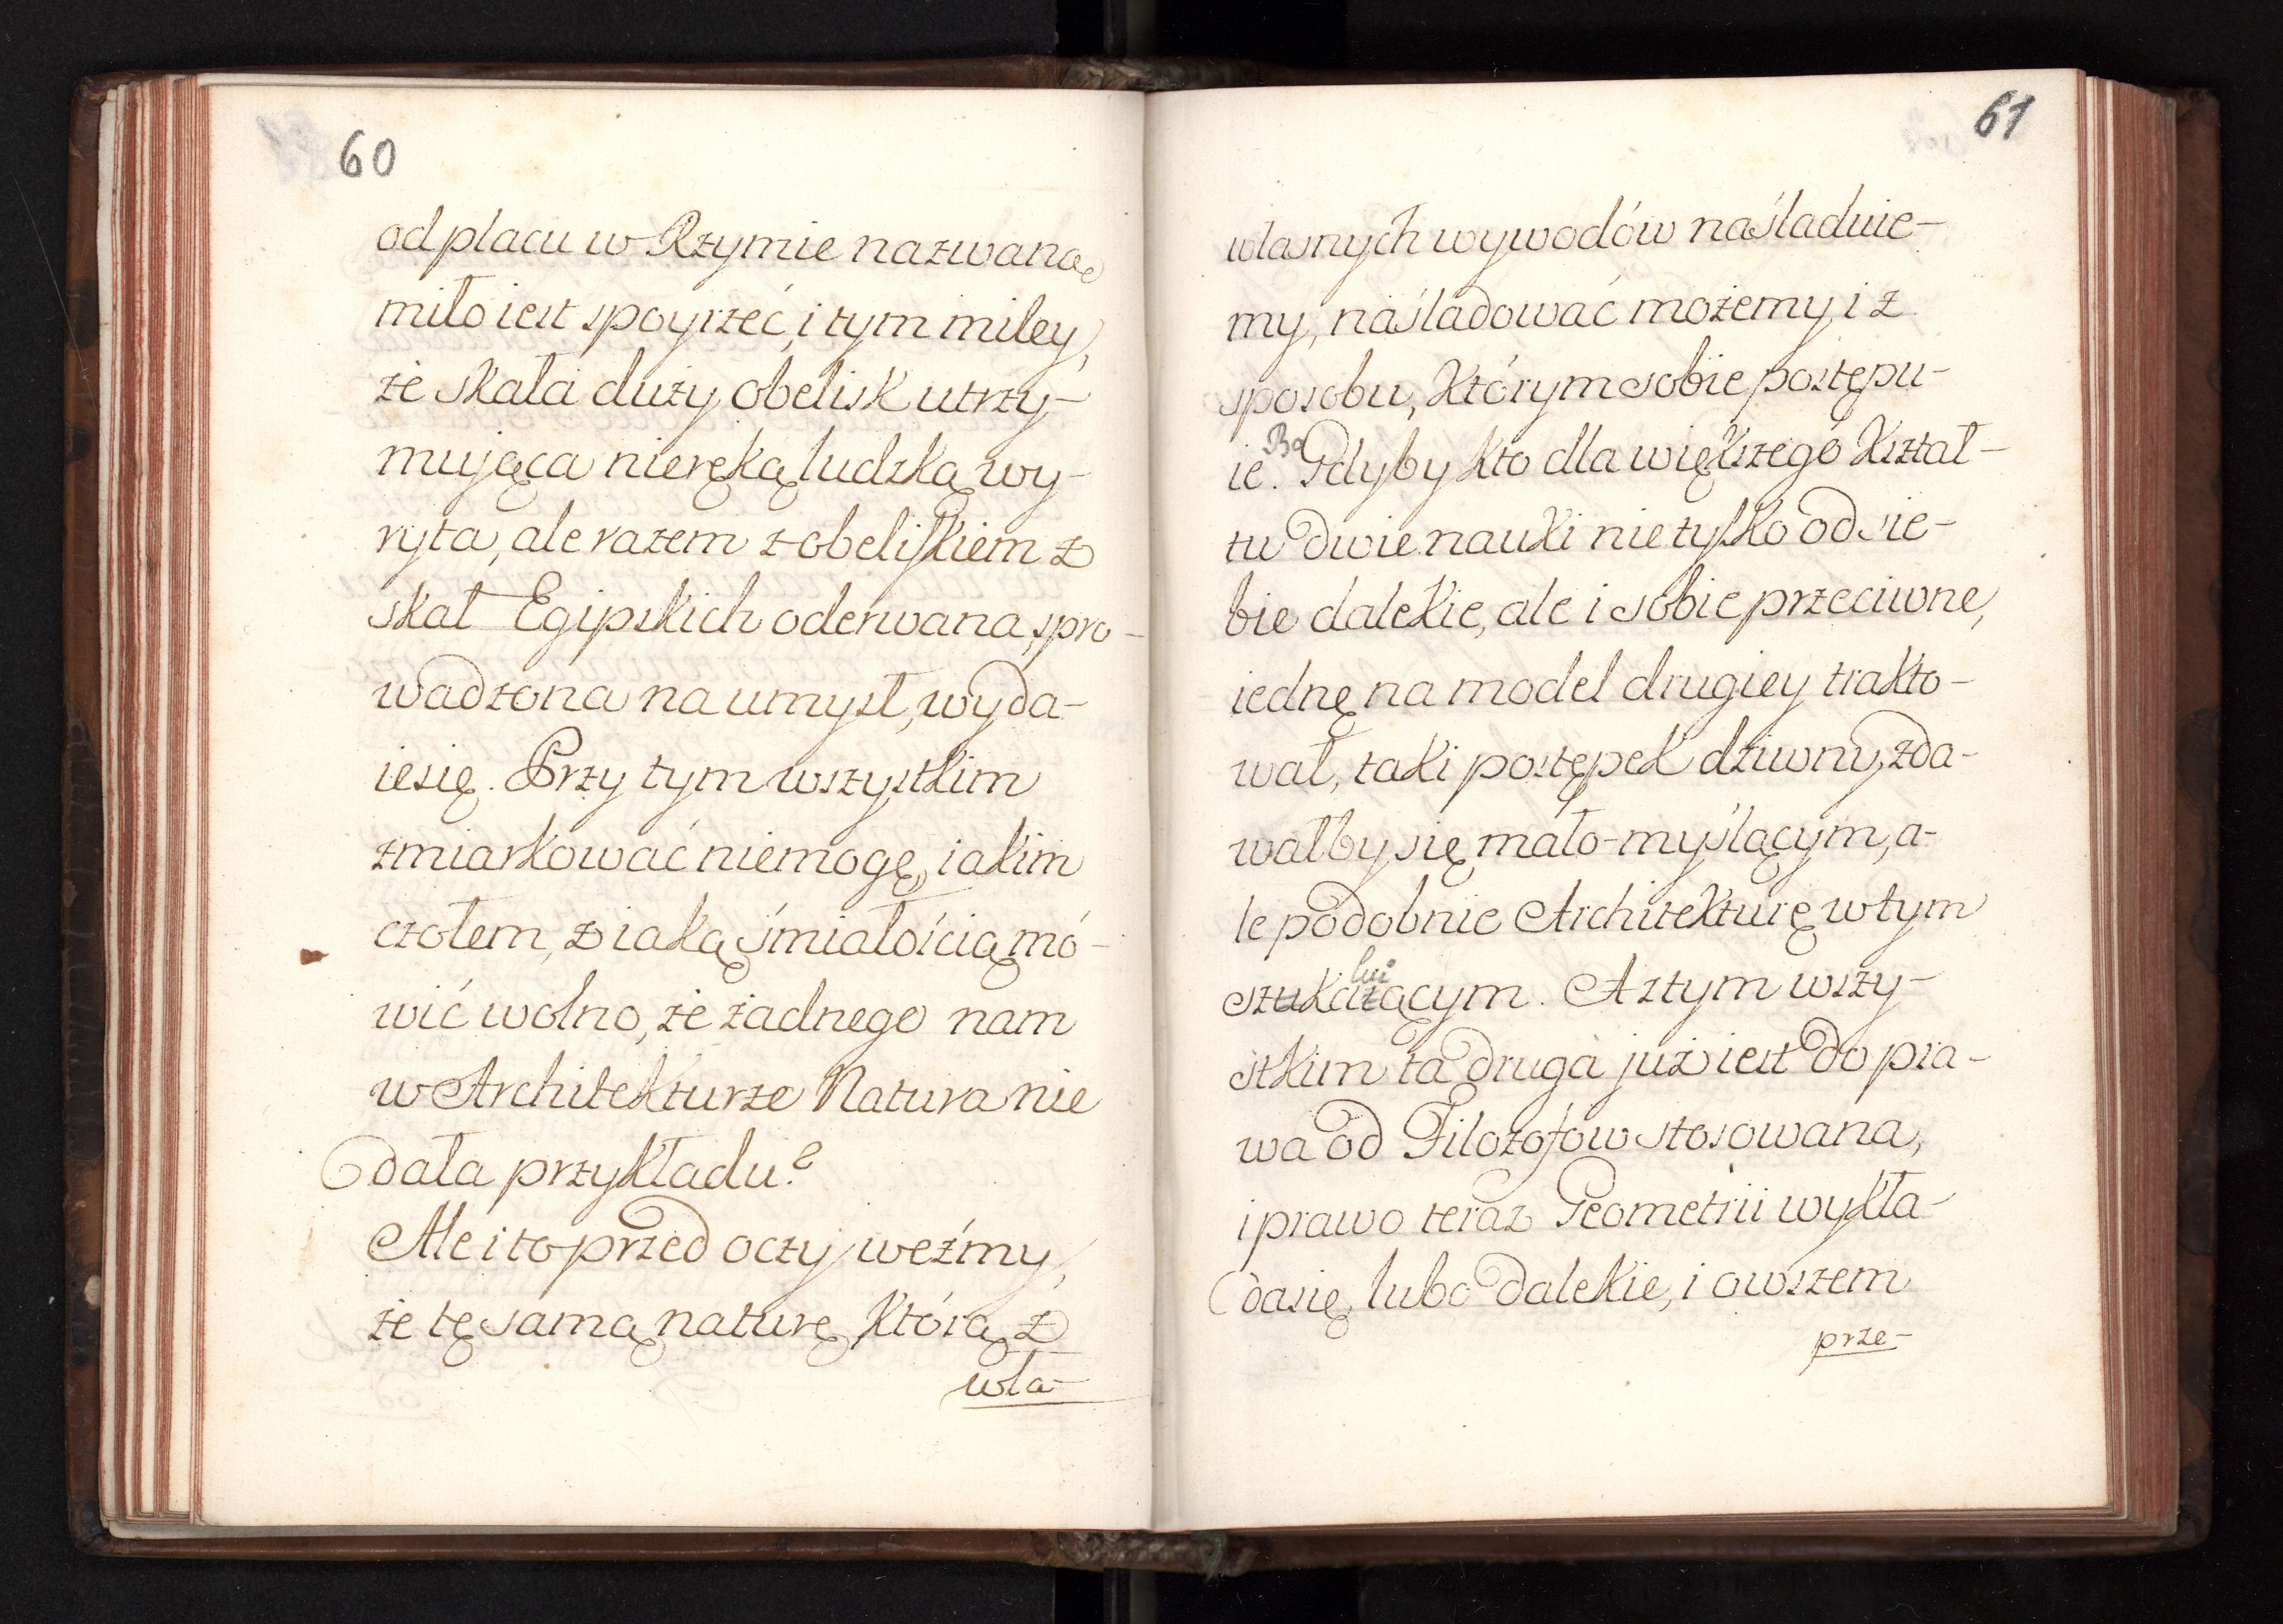 60
od placu w Rzymie nazwaną
miło iest spoyrzeć, i tym miley,
że skała duży obelisk utrzy-
mująca nie ręką ludzką wy-
ryta, ale razem z obeliskiem z
skał Egipskich oderwana, spro-
wadzona na umysł, wyda-
ie się. Przy tym wszystkim
zmiarkować niemogę, iakim
czołem, z iaką śmiałością mó-
wić wolno, że żadnego nam
w Architekturze Natura nie
dała przykładu?
Ale i to przed oczy weźmy,
że tę samą naturę, którą z
wła-
61
własnych wywodów naśladuie-
my, naśladować możemy, i z
sposobu, którym sobie postępu-
ie. Bo Gdyby kto dla większego kształ-
tu dwie nauki nie tylko od sie-
bie dalekie, ale i sobie przeciwne,
iednę na model drugiey trakto-
wał, taki postępek dziwny zda-
wałby się mało-myślącym, a-
le podobnie Architekturę w tym
lui
szukaiącym. A z tym wszy-
stkim ta druga już iest do pra-
wa od Filozofow stosowana,
i prawo teraz Geometrii wykła-
da się, lubo dalekie, i owszem
prze-